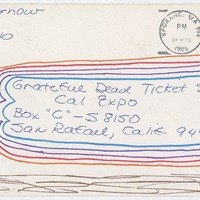 rnow
SPOKANE, WA
PM
1986
Grateful Dead Ticket S
Cal Expo
Box "C" - S 8150
San Rafael, Calif. 94